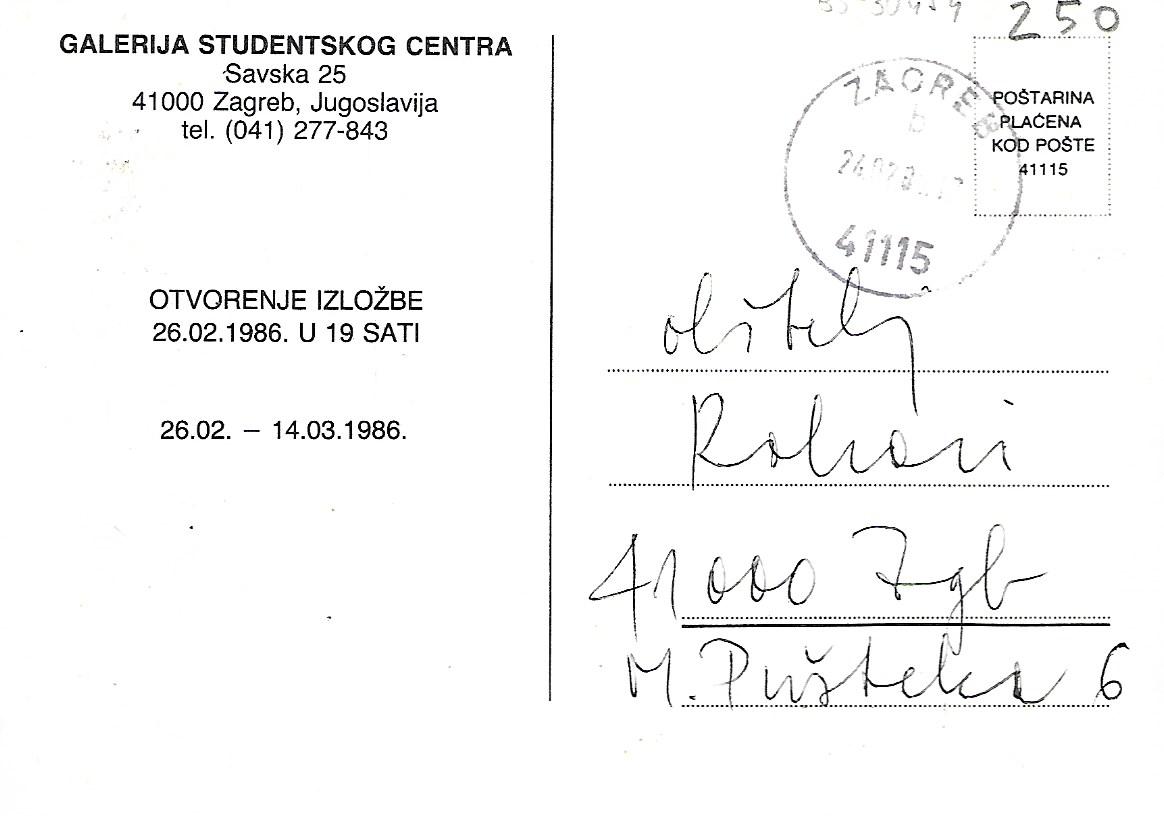 GALERIJA STUDENTSKOG CENTRA
Savska 25
41000 Zagreb, Jugoslavija
tel. (041) 277-843
OTVORENJE IZLOŽBE
26.02.1986. U 19 SATI
26.02. – 14.03.1986.
250
ZAGREB
b
41115
POŠTARINA
PLAĆENA
KOD POŠTE
41115
41000 Zgb
M. Pušteka 6